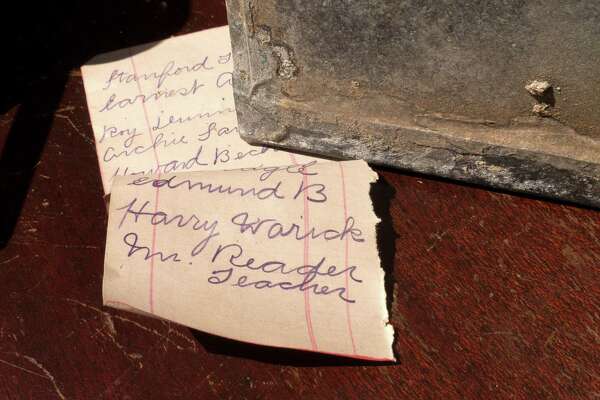 Stanford
Earnest
Roy
Archie
Howard
Edmund B
Harry Warick
Mr. Reader
Teacher